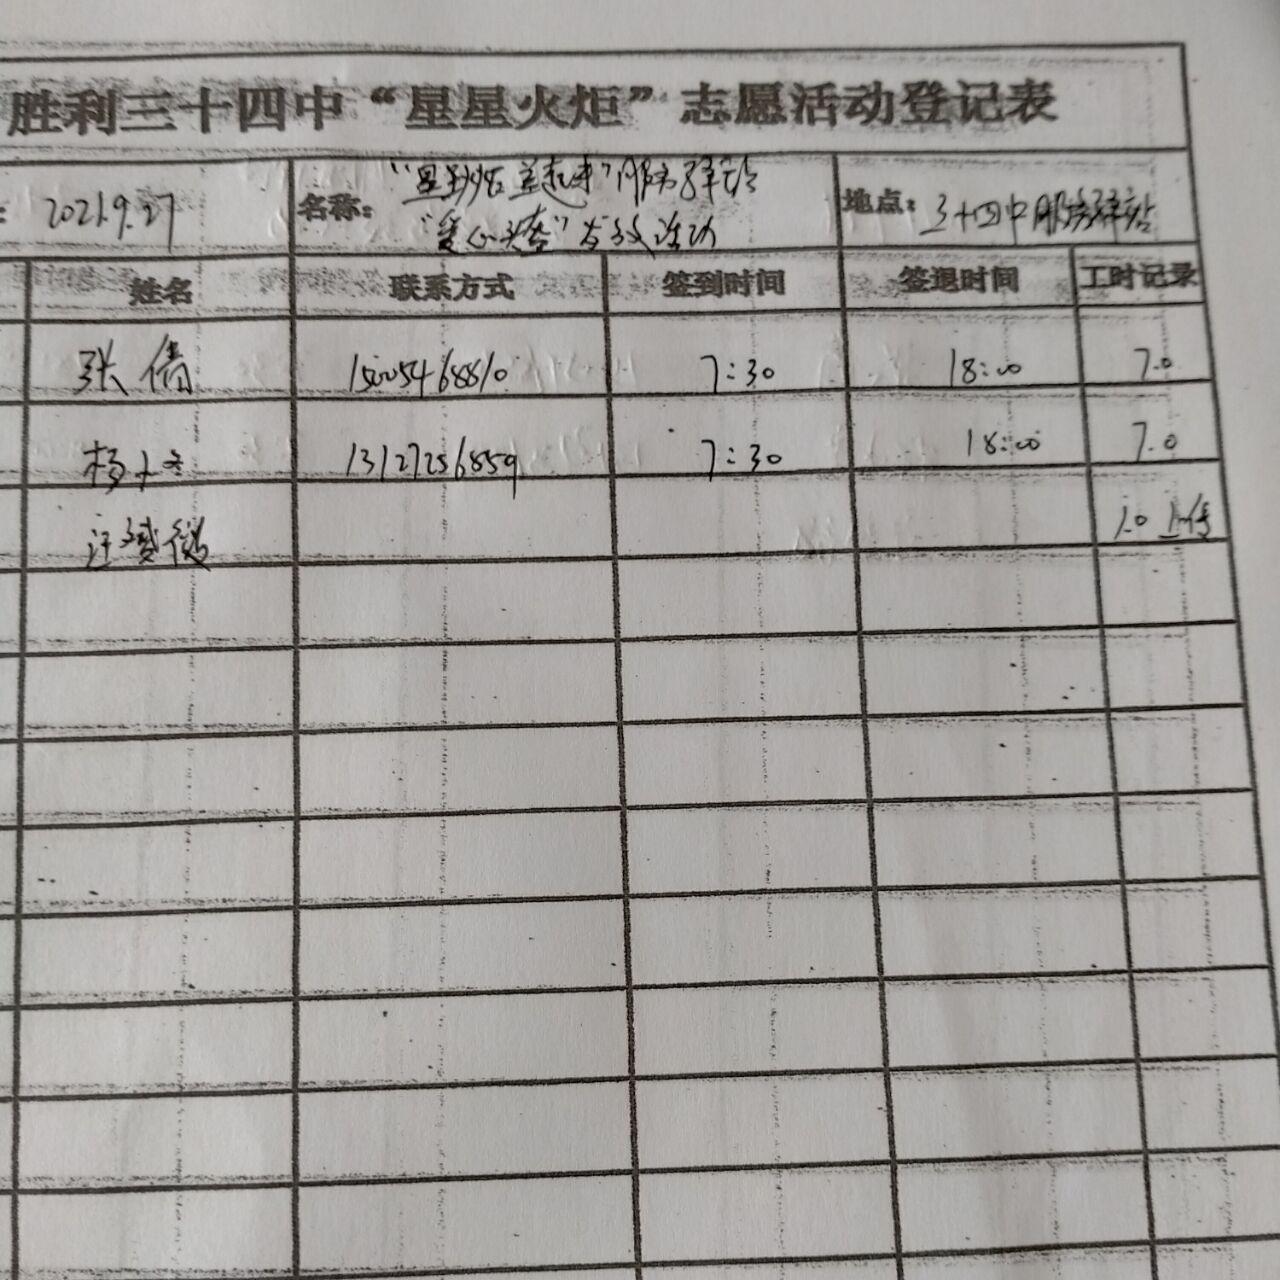 胜利三十四中“星星火炬”志愿活动登记表
: 2021.9.27 名称: 服务驿站 地点: 三十四中服务驿站
“爱心 ”发放活动
姓名 联系方式 签到时间 签退时间 工时记录
张倩 15005468810 7:30 18:00 7.0
杨 13127256859 7:30 18:00 7.0
汪 上传